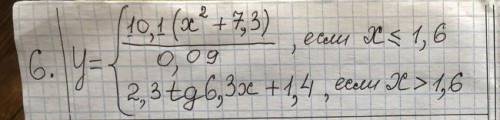 6. y = { 10,1(x² + 7,3) / 0,09 , если x ≤ 1,6
2,3 tg 6,3x + 1,4 , если x > 1,6